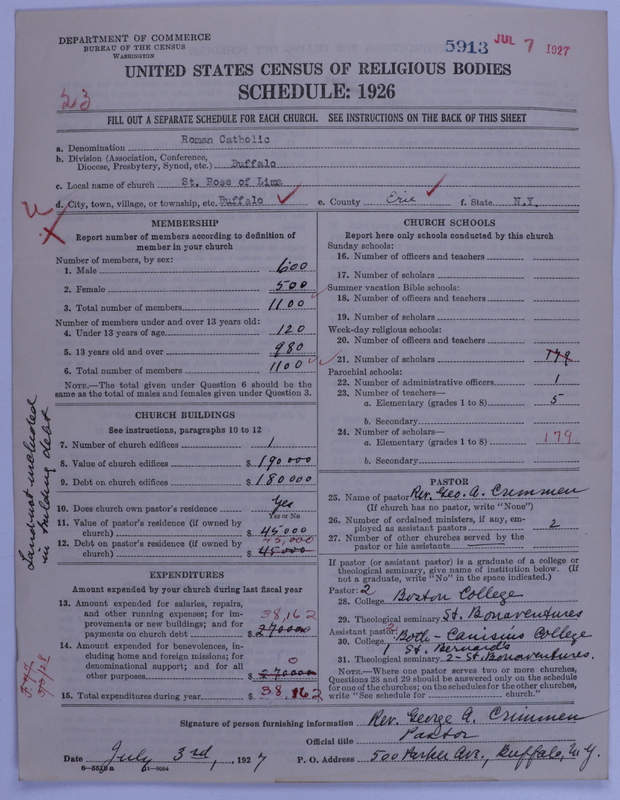 DEPARTMENT OF COMMERCE
BUREAU OF THE CENSUS
WASHINGTON
5913 JUL 7 1927
UNITED STATES CENSUS OF RELIGIOUS BODIES
SCHEDULE: 1926
23
FILL OUT A SEPARATE SCHEDULE FOR EACH CHURCH. SEE INSTRUCTIONS ON THE BACK OF THIS SHEET
a. Denomination Roman Catholic
b. Division (Association, Conference,
Diocese, Presbytery, Synod, etc.) Buffalo
c. Local name of church St. Rose of Lima
d. City, town, village, or township, etc. Buffalo e. County Erie f. State N.Y.
MEMBERSHIP
Report number of members according to definition of
member in your church
Number of members, by sex:
1. Male 600
2. Female 500
3. Total number of members 1100
Number of members under and over 13 years old:
4. Under 13 years of age 120
5. 13 years old and over 980
6. Total number of members 1100
NOTE.—The total given under Question 6 should be the
same as the total of males and females given under Question 3.
CHURCH BUILDINGS
See instructions, paragraphs 10 to 12
7. Number of church edifices 1
8. Value of church edifices $190000
9. Debt on church edifices $180000
10. Does church own pastor's residence Yes
Yes or No
11. Value of pastor's residence (if owned by
church) $45000
12. Debt on pastor's residence (if owned by 45,000
church) $45000
Land not included
in building debt
EXPENDITURES
Amount expended by your church during last fiscal year
13. Amount expended for salaries, repairs,
and other running expenses; for im-
provements or new buildings; and for 38,162
payments on church debt $270000
14. Amount expended for benevolences, in-
cluding home and foreign missions; for
denominational support; and for all 0
other purposes $270000
15. Total expenditures during year $38,162
CHURCH SCHOOLS
Report here only schools conducted by this church
Sunday schools:
16. Number of officers and teachers
17. Number of scholars
Summer vacation Bible schools:
18. Number of officers and teachers
19. Number of scholars
Week-day religious schools:
20. Number of officers and teachers
21. Number of scholars 179
Parochial schools:
22. Number of administrative officers 1
23. Number of teachers—
a. Elementary (grades 1 to 8) 5
b. Secondary
24. Number of scholars—
a. Elementary (grades 1 to 8) 179
b. Secondary
PASTOR
25. Name of pastor Rev. Geo. A. Crimmen
(If church has no pastor, write "None")
26. Number of ordained ministers, if any, em-
ployed as assistant pastors 2
27. Number of other churches served by the
pastor or his assistants
If pastor (or assistant pastor) is a graduate of a college or
theological seminary, give name of institution below. (If
not a graduate, write "No" in the space indicated.)
Pastor: 2
28. College Boston College
29. Theological seminary St. Bonaventures
Assistant pastor: 2
30. College Both - Canisius College
1 St. Bernards
31. Theological seminary 2 - St. Bonaventures.
NOTE.—Where one pastor serves two or more churches,
Questions 28 and 29 should be answered only on the schedule
for one of the churches; on the schedules for the other churches,
write "See schedule for church."
Signature of person furnishing information Rev. George A. Crimmen
Official title Pastor
Date July 3rd, 1927 P. O. Address 500 Parker Ave., Buffalo, N.Y.